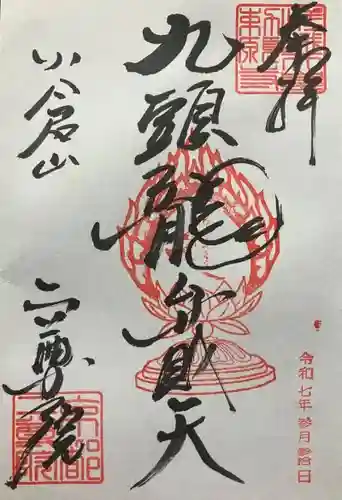 奉拝
九頭龍弁財天
小倉山
二尊院
令和七年参月拾日